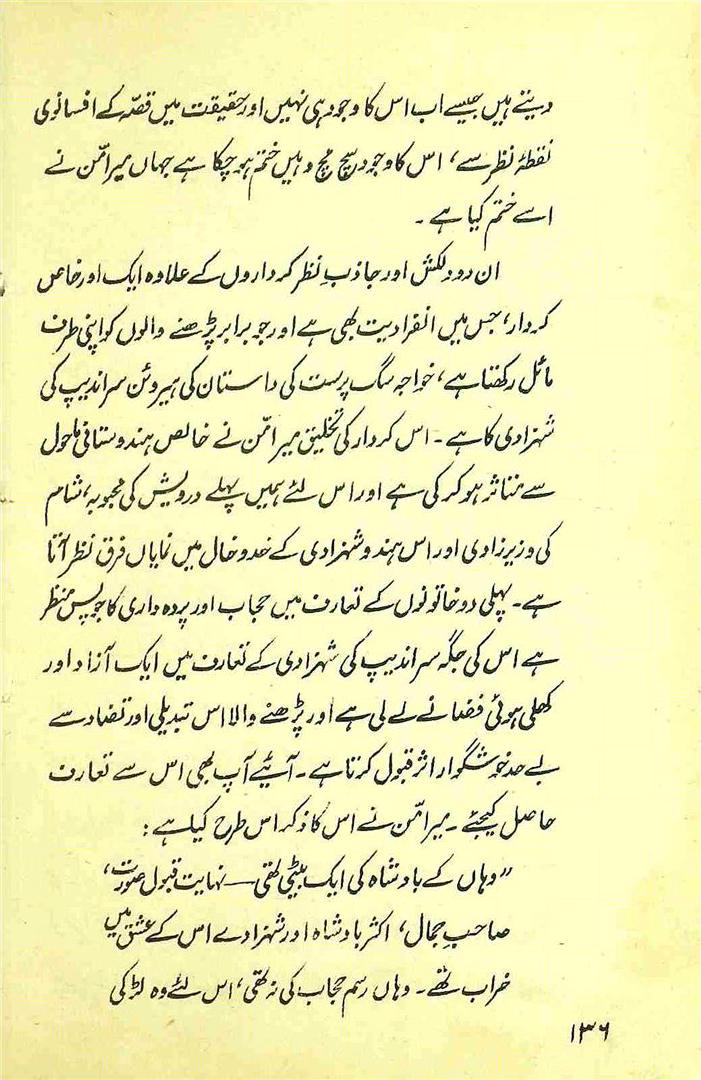 دیتے ہیں جیسے اب اس کا وجود ہی نہیں اور حقیقت میں قصّہ کے افسانوی
نقطۂ نظر سے، اس کا وجود سچ مچ وہیں ختم ہو چکا ہے جہاں میرامّن نے
اسے ختم کیا ہے ۔
ان دو دلکش اور جاذبِ نظر کرداروں کے علاوہ ایک اور خاص
کردار، جس میں انفرادیت بھی ہے اور جو برابر پڑھنے والوں کو اپنی طرف
مائل رکھتا ہے، خواجہ سگ پرست کی داستان کی ہیروئن سراندیپ کی
شہزادی کا ہے ۔ اس کردار کی تخلیق میرامّن نے خالص ہندوستانی ماحول
سے متاثر ہو کر کی ہے اور اس لئے ہمیں پہلے درویش کی محبوبہ، شام
کی وزیرزادی اور اس ہندو شہزادی کے خدوخال میں نمایاں فرق نظر آتا
ہے ۔ پہلی دو خاتونوں کے تعارف میں حجاب اور پردہ داری کا جو پس منظر
ہے اس کی جگہ سراندیپ کی شہزادی کے تعارف میں ایک آزاد اور
کھلی ہوئی فضا نے لے لی ہے اور پڑھنے والا اس تبدیلی اور تضاد سے
بے حد خوشگوار اثر قبول کرتا ہے ۔ آئیے آپ بھی اس سے تعارف
حاصل کیجئے ۔ میرامّن نے اس کا ذکر اس طرح کیا ہے :
”وہاں کے بادشاہ کی ایک بیٹی تھی — نہایت قبول صورت،
صاحبِ جمال، اکثر بادشاہ اور شہزادے اس کے عشق میں
خراب تھے ۔ وہاں رسم حجاب کی نہ تھی، اس لئے وہ لڑکی
۱۳۶